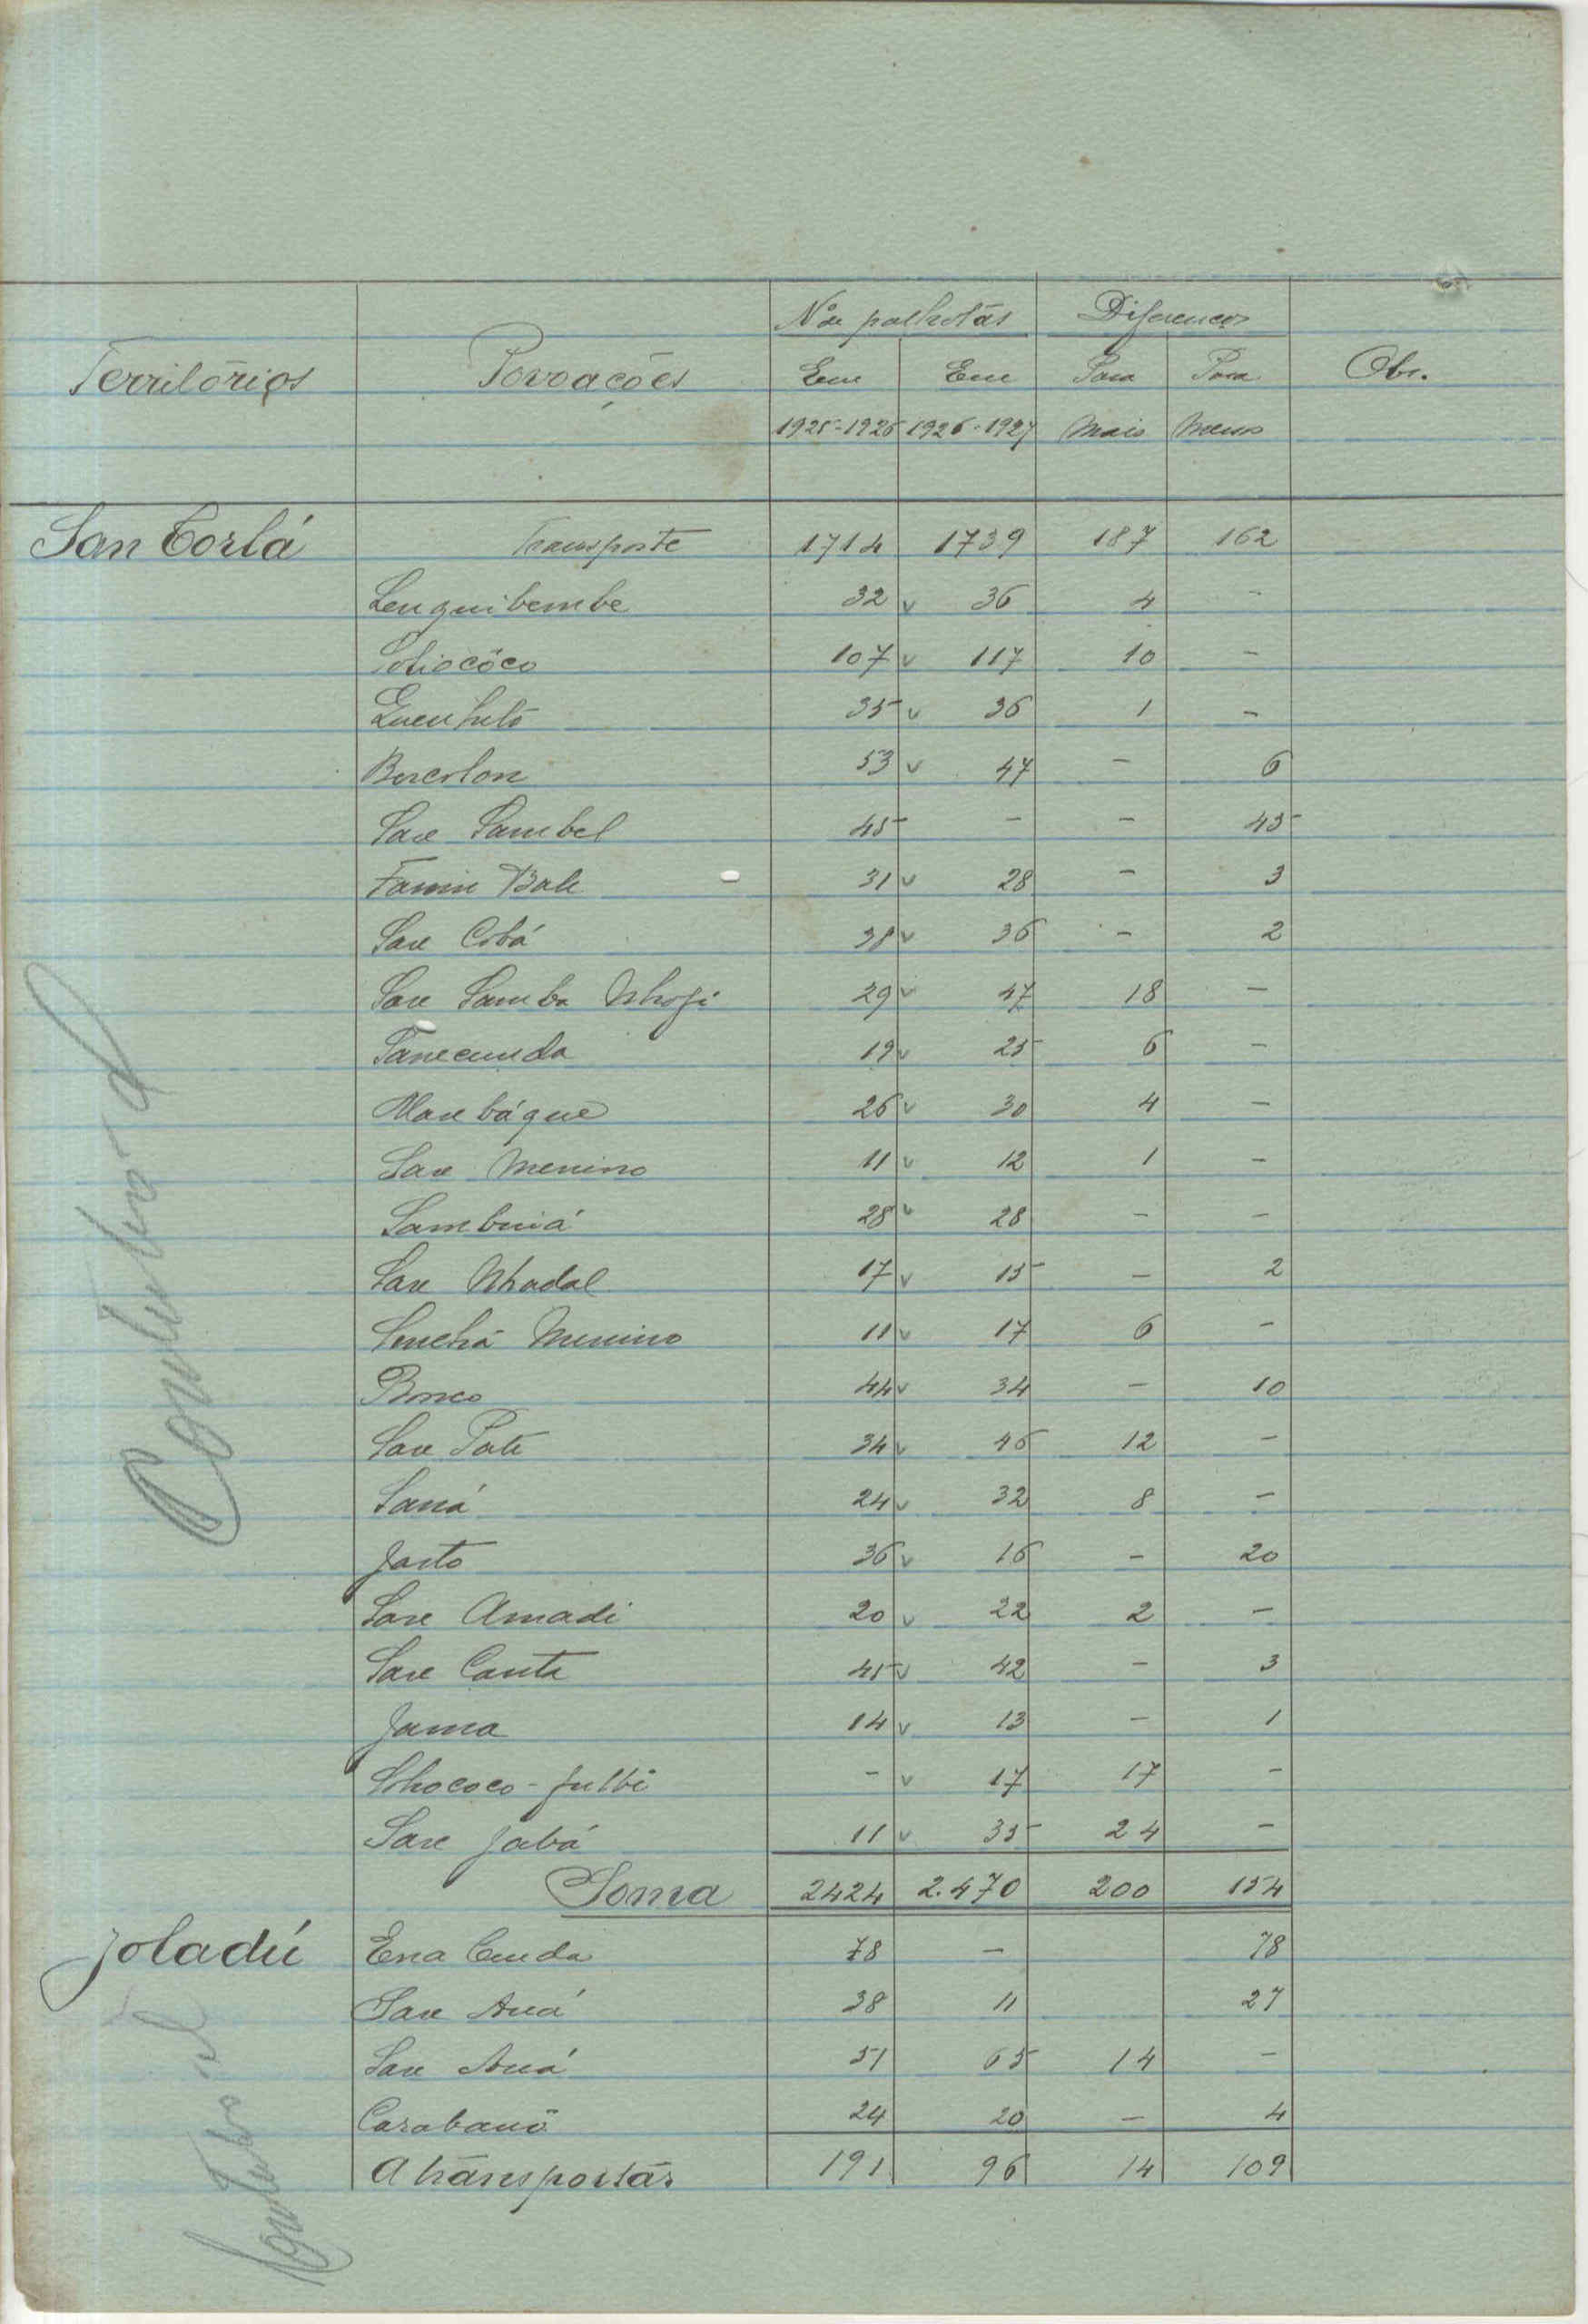 Nº de palhotas Diferenças
Territórios Povoações Em Em Para Para Obs.
1925-1926 1926-1927 Mais Menos
San Corlá Transporte 1714 1739 187 162
Lenquibembe 32 v 36 4 -
107 v 117 10 -
35 v 36 1 -
Bercolon 53 v 47 - 6
Sare Sambel 45 - - 45
Bale 31 v 28 - 3
Sare Cobá 38 v 36 - 2
Sare Samba 29 v 47 18 -
Tanecunda 19 v 25 6 -
26 v 30 4 -
Sare Menino 11 v 12 1 -
Sambuiá 28 v 28 - -
Sare Nhadal 17 v 15 - 2
Senchá Menino 11 v 17 6 -
Bonco 44 v 34 - 10
Sare Pate 34 v 46 12 -
Saná 24 v 32 8 -
36 v 16 - 20
Sare Amadi 20 v 22 2 -
Sare Canta 45 v 42 - 3
Jama 14 v 13 - 1
- v 17 17 -
Sare Jabá 11 v 35 24 -
Soma 2424 2.470 200 154
Joladú Ena Cunda 78 - 78
Sare Auá 38 11 27
Sare Auá 51 65 14 -
24 20 - 4
A transportar 191 96 14 109